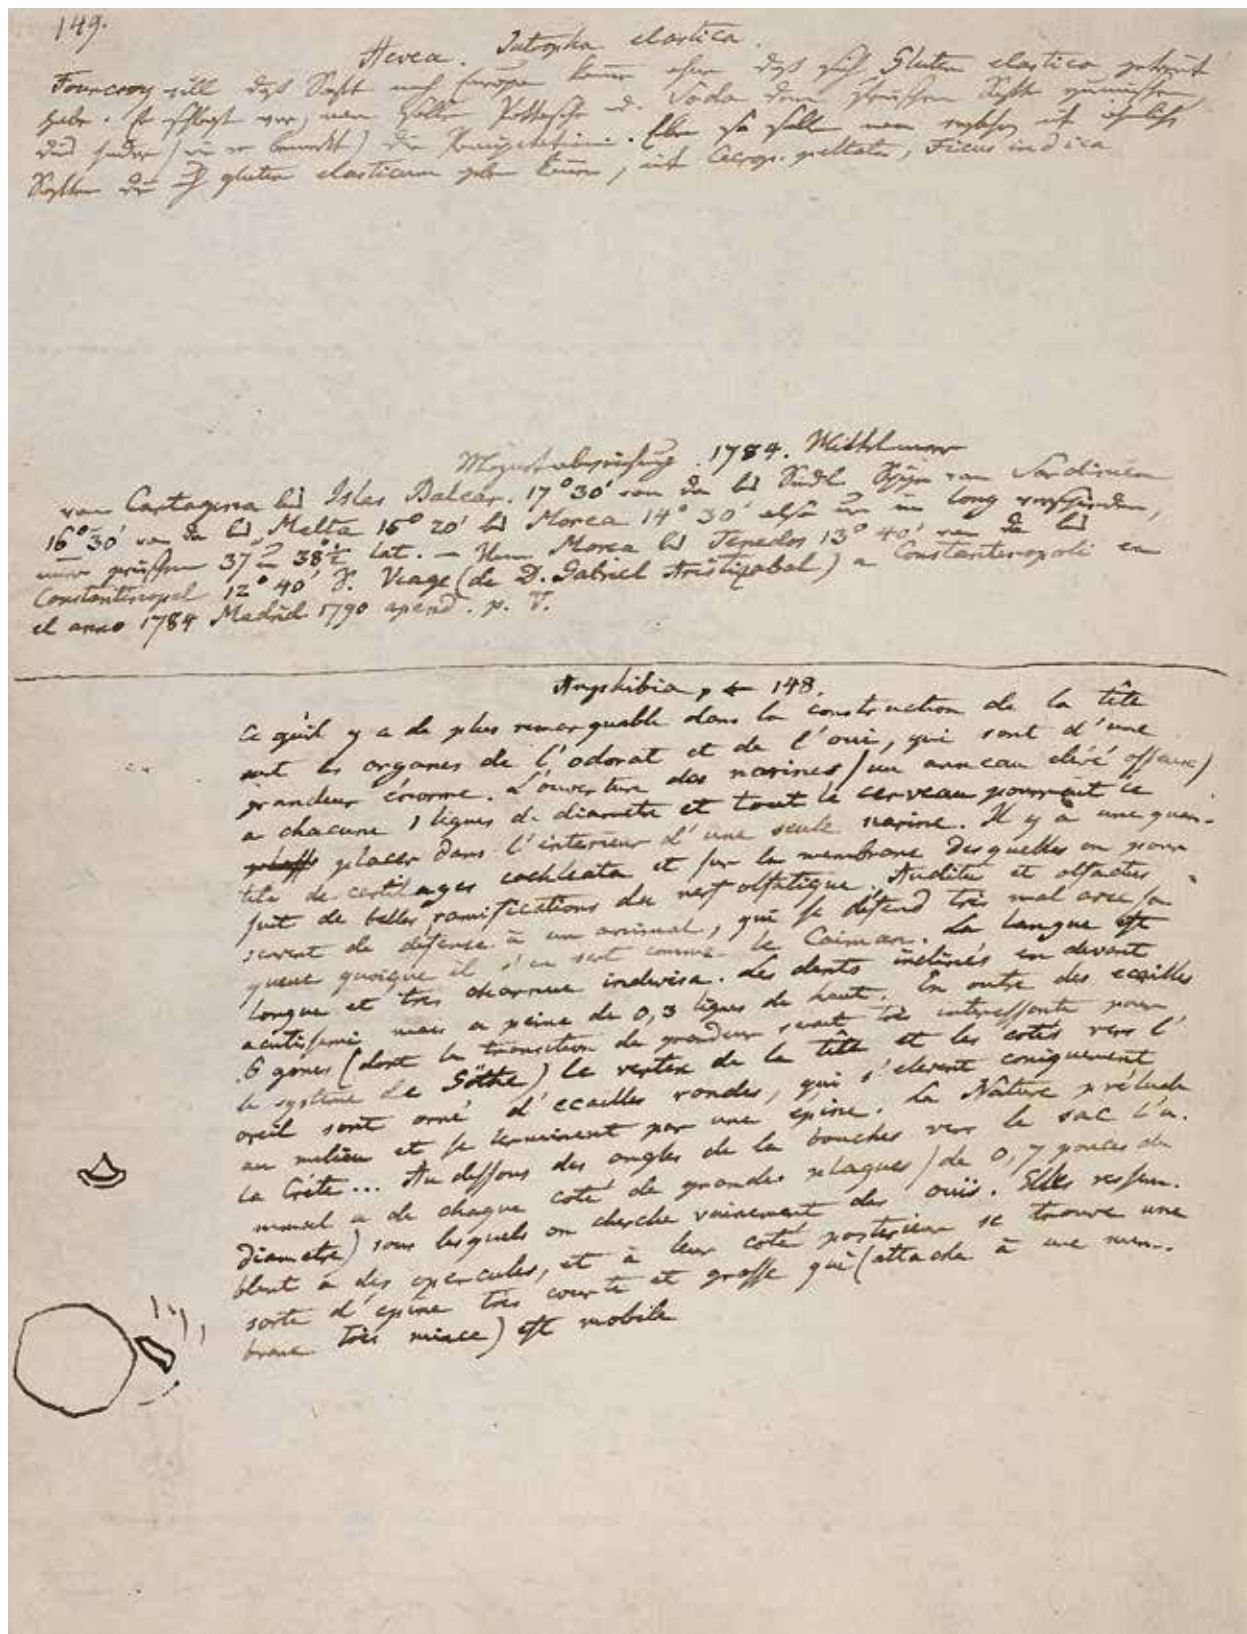 149.
Hevea. Jatropha elastica.
Fourcroy will daß Saft nach Europa komme ohne daß sich Gluten elastica getrennt
habe. Er schlägt vor, man solle Pottasche od. Soda dem frischen Safte zumischen,
dies hindre (wie er bemerkt) die Präzipitation. Eben so solle man ob ähnliche
Säfte die gluten elasticum geben können, mit Cecrop. peltata, Ficus indica
Magnetabweichung 1784. Mittelmeer
von Cartagena bis Islas Balear. 17° 30' von da bis Südl. von Sardinien
16° 30' von da bis Malta 15° 20' bis Morea 14° 30' also nur in long verschieden,
immer zwischen 37 u 38½ Lat. – Von Morea bis Tenedos 13° 40' von da bis
Constantinopel 12° 40' S. Viage (de D. Gabriel Aristizabal) a Constantinopoli en
el anno 1784 Madrid 1790 apend. p. V.
Amphibia, p ← 148.
Ce qu'il y a de plus remarquable dans la construction de la tête
sont les organes de l'odorat et de l'oui, qui sont d'une
grandeur énorme. L'ouverture des narines (un anneau élevé osseux)
a chacune 1 lignes de diametre et tout le cerveau pourrait se
placer dans l'interieur d'une seule narine. Il y a une quan-
tité de cartilages cochleata et sur la membrane desquelles on pour
suit de belles ramifications du nerf olfatique. Auditus et olfactus
servent de défense à un animal, qui se défend très mal avec sa
queue quoique il s'en sert comme le Caiman. La langue est
longue et très charnue indivisa. Les dents inclinés en devant
acutissimi mais a peine de 0,3 lignes de haut. En outre des ecailles
6 gones (dont la transition de grandeur serait très interessante pour
le système de Göthe) le vertex de la tête et les cotés vers l'
oreil sont orné d'ecailles rondes, qui s'elevent coniquement
au milieu et se terminent par une epine. La Nature prélude
la Crête... Au dessous des angles de la bouches vers le sac l'a-
nimal a de chaque coté de grandes plaques (de 0,7 pouces de
diametre) sous lesquels on cherche vainement des ouïs. Elles ressem-
blent à des opercules, et à leur coté posterieur se trouve une
sorte d'epine très courte et grosse qui (attaché à une mem-
brane très mince) est mobile